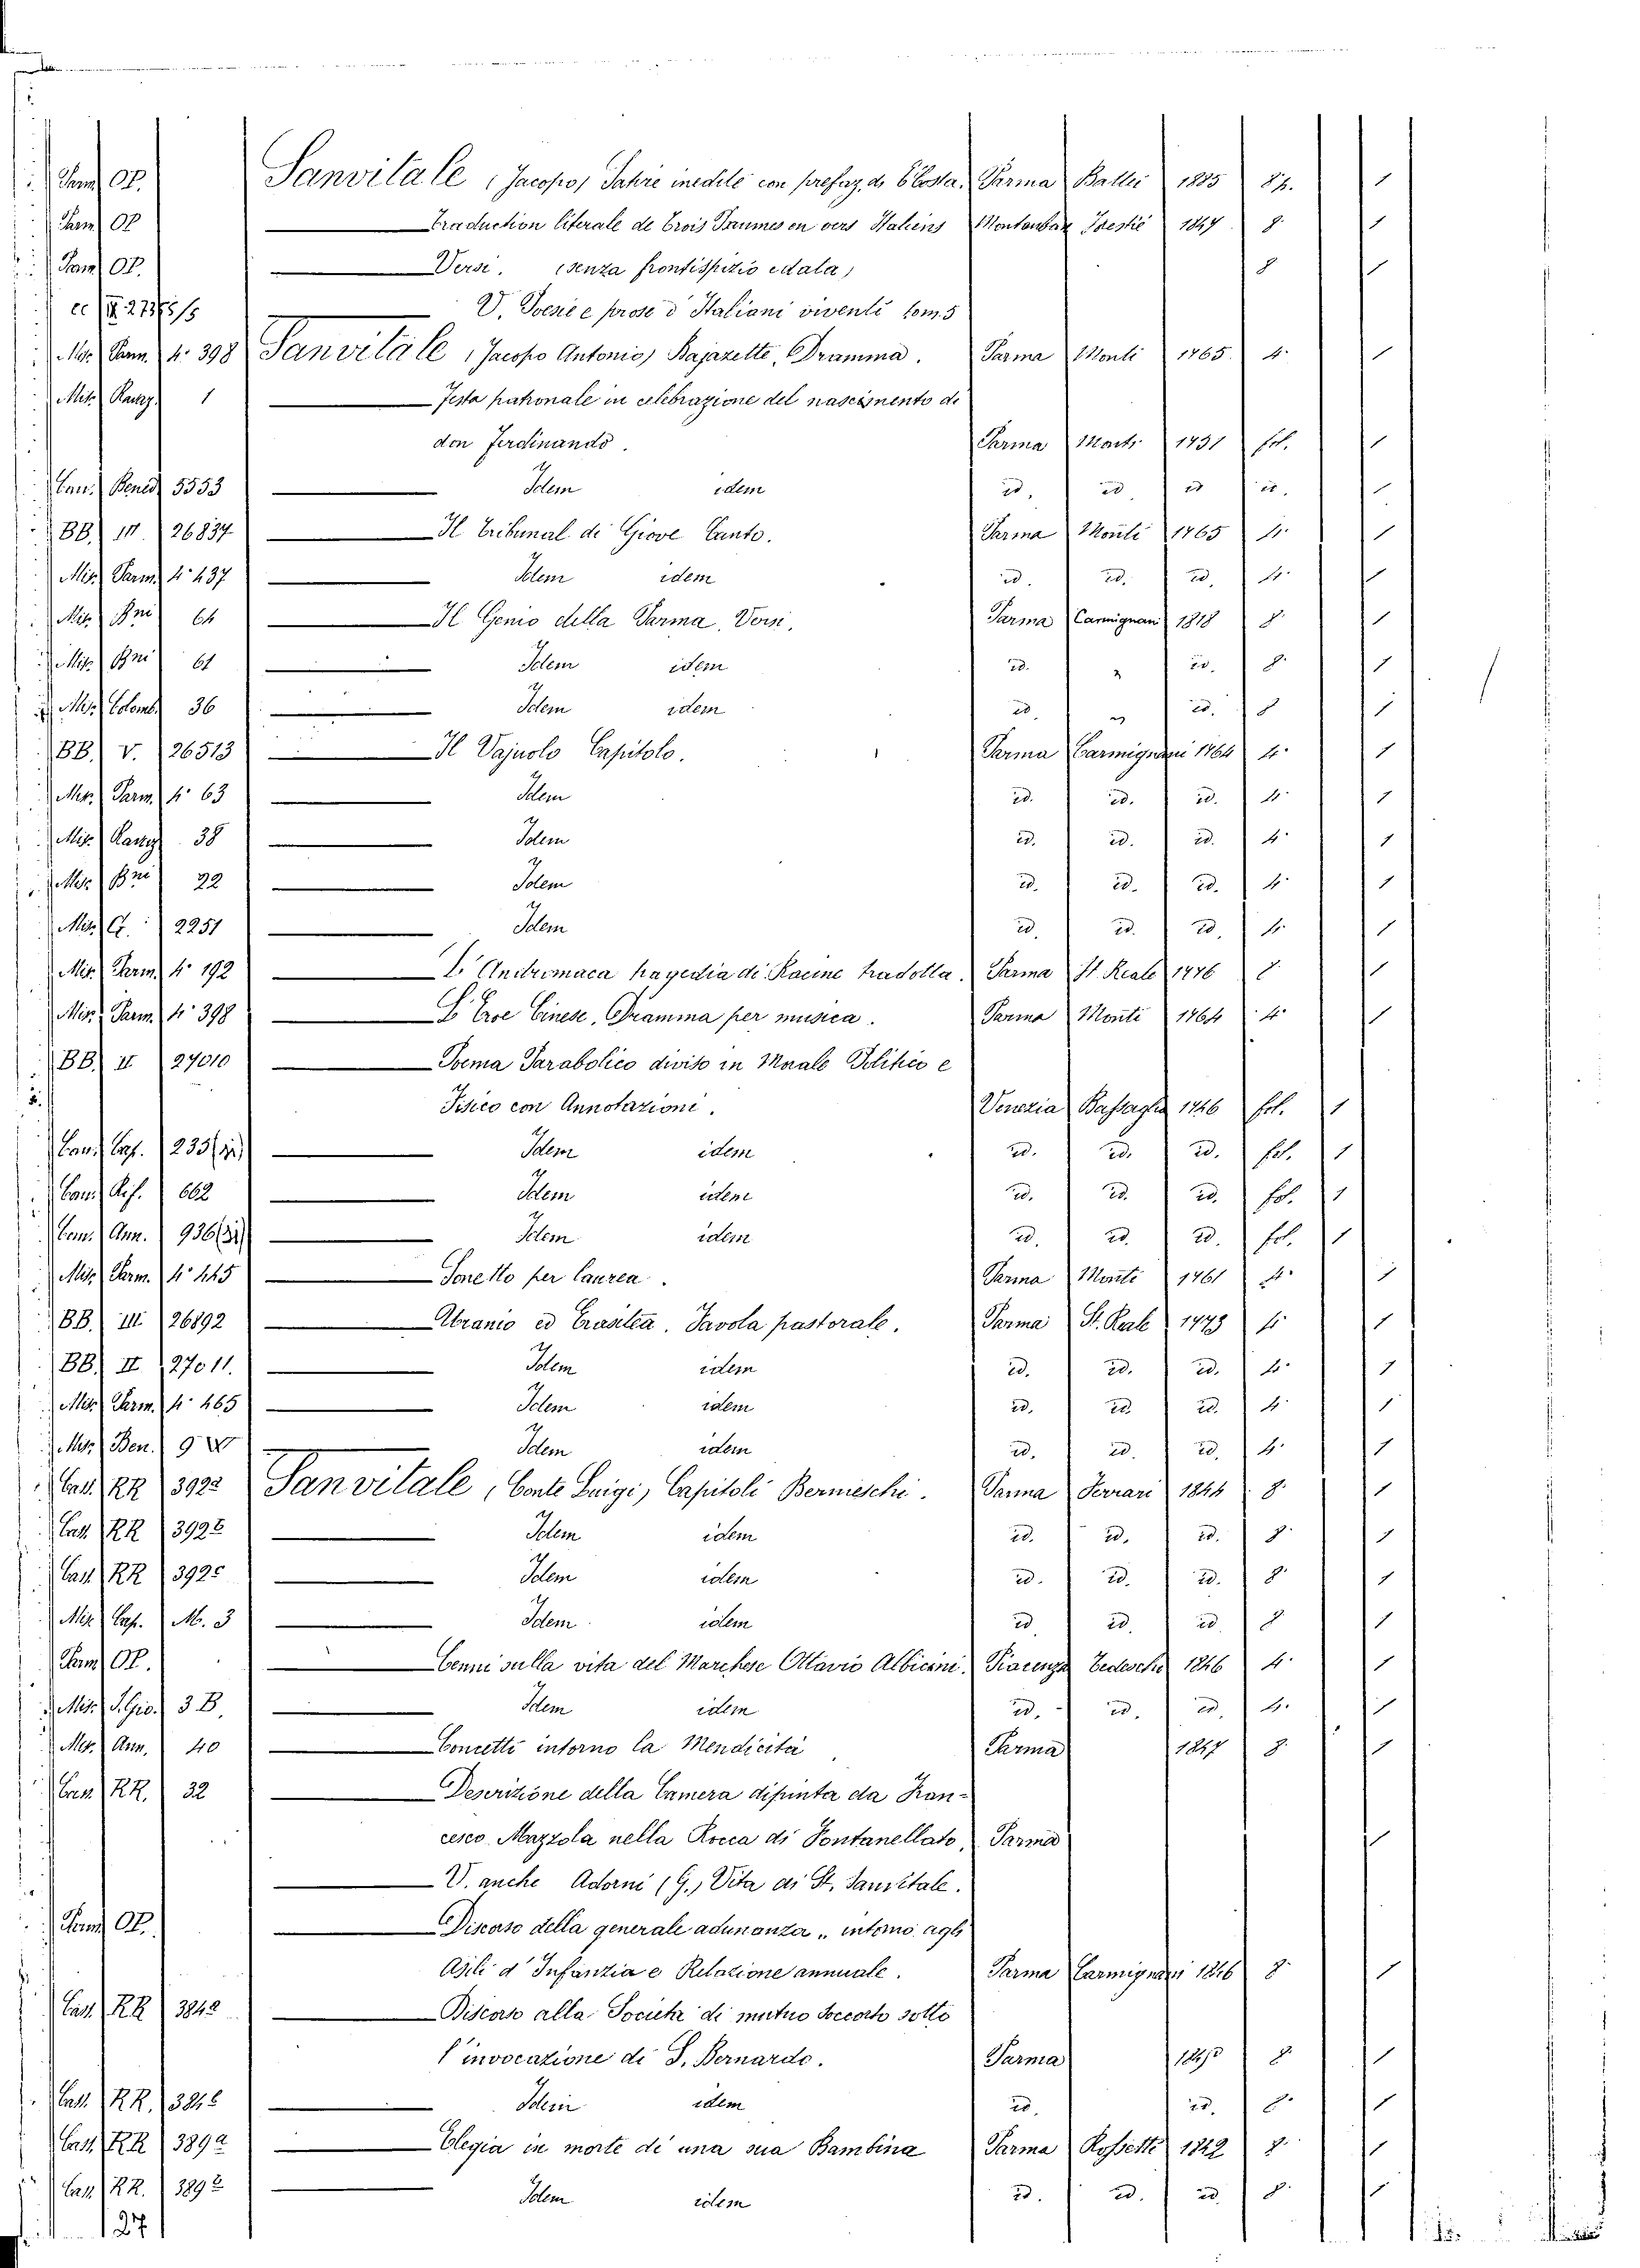 Parm. OP. Sanvitale (Jacopo) Satire inedite con prefaz. di Costa. Parma Battei 1885 8º. 1
Parm. OP — Traduction literale de trois Psaumes en vers Italiens Montauban 1847 8º 1
Parm. OP. — Versi. (senza frontispizio e data) 8 1
cc II. 27365/5 V. Poesie e prose d'Italiani viventi tom. 5
Mis. Parm. 4º 398 Sanvitale (Jacopo Antonio) Bajazette, Dramma. Parma Monti 1765 4º 1
Mis. Ranz. 1 — Festa pastorale in celebrazione del nascimento di
don Ferdinando. Parma 1751 fol. 1
Bened. 5553 — Idem idem id. id. id. id. 1
BB. III. 26837 — Il Tribunal di Giove Canto. Parma Monti 1765 4º 1
Mis. Parm. 4º 437 — Idem idem id. id. id. 4º 1
Mis. 64 — Il Genio della Parma, Versi. Parma Carmignani 1818 8º 1
Mis. 61 — Idem idem id. " id. 8º 1
Mis. Colomb. 36 — Idem idem id. " id. 8 1
BB. V. 26513 — Il Vajuolo Capitolo. Parma Carmignani 1764 4º 1
Mis. Parm. 4º 63 — Idem id. id. id. 4º 1
Mis. Ranz. 38 — Idem id. id. id. 4º 1
Mis. 22 — Idem id. id. id. 4º 1
Mis. G. 2251 — Idem id. id. id. 4º 1
Mis. Parm. 4º 192 — L'Andromaca tragedia di Racine tradotta. Parma St. Reale 1776 8º 1
Mis. Parm. 4º 398 — L'Eroe Cinese, Dramma per musica. Parma Monti 1764 4º 1
BB. II 27010 — Poema Parabolico diviso in Morale Politico e
Fisico con Annotazioni. Venezia Bassaglia 1746 fol. 1
Cap. 235 — Idem idem id. id. id. fol. 1
662 — Idem idem id. id. id. fol. 1
Ann. 936 — Idem idem id. id. id. fol. 1
Mis. Parm. 4º 445 — Sonetto per laurea. Parma Monti 1761 4º 1
BB. III. 26892 — Uranio ed Erasitea. Favola pastorale. Parma St. Reale 1773 4º 1
BB. II 27011. — Idem idem id. id. id. 4º 1
Mis. Parm. 4º 465 — Idem idem id. id. id. 4º 1
Mis. Ben. 9 — Idem idem id. id. id. 4º 1
Cass. RR 392a Sanvitale (Conte Luigi) Capitoli Bernieschi. Parma Ferrari 1844 8º 1
Cass. RR 392b — Idem idem id. id. id. 8º 1
Cass. RR 392c — Idem idem id. id. id. 8º 1
Mis. Cap. M. 3 — Idem idem id id. id. 8 1
Parm. OP. — Cenni sulla vita del Marchese Ottavio Albicini. Piacenza Tedeschi 1846 4º 1
Mis. S. Gio. 3 B. — Idem idem id. id. id. 4º 1
Mis. Ann. 40 — Concetti intorno la Mendicità Parma 1847 8º 1
RR. 32 — Descrizione della Camera dipinta da Fran-
cesco Mazzola nella Rocca di Fontanellato, Parma 1
— V. anche Adorni (G.) Vita di St. Sanvitale.
Parm. OP. — Discorso della generale adunanza " intorno agli
Asili d'Infanzia e Relazione annuale. Parma Carmignani 1846 8º 1
Cass. RR 384a — Discorso alla Società di mutuo soccorso sotto
l'invocazione di S. Bernardo. Parma 8º 1
Cass. RR. 384b — Idem idem id. id. 8º 1
Cass. RR 389a — Elegia in morte di una sua Bambina Parma Rossetti 1842 8º 1
Cass. RR. 389b — Idem idem id. id. id. 8º 1
127